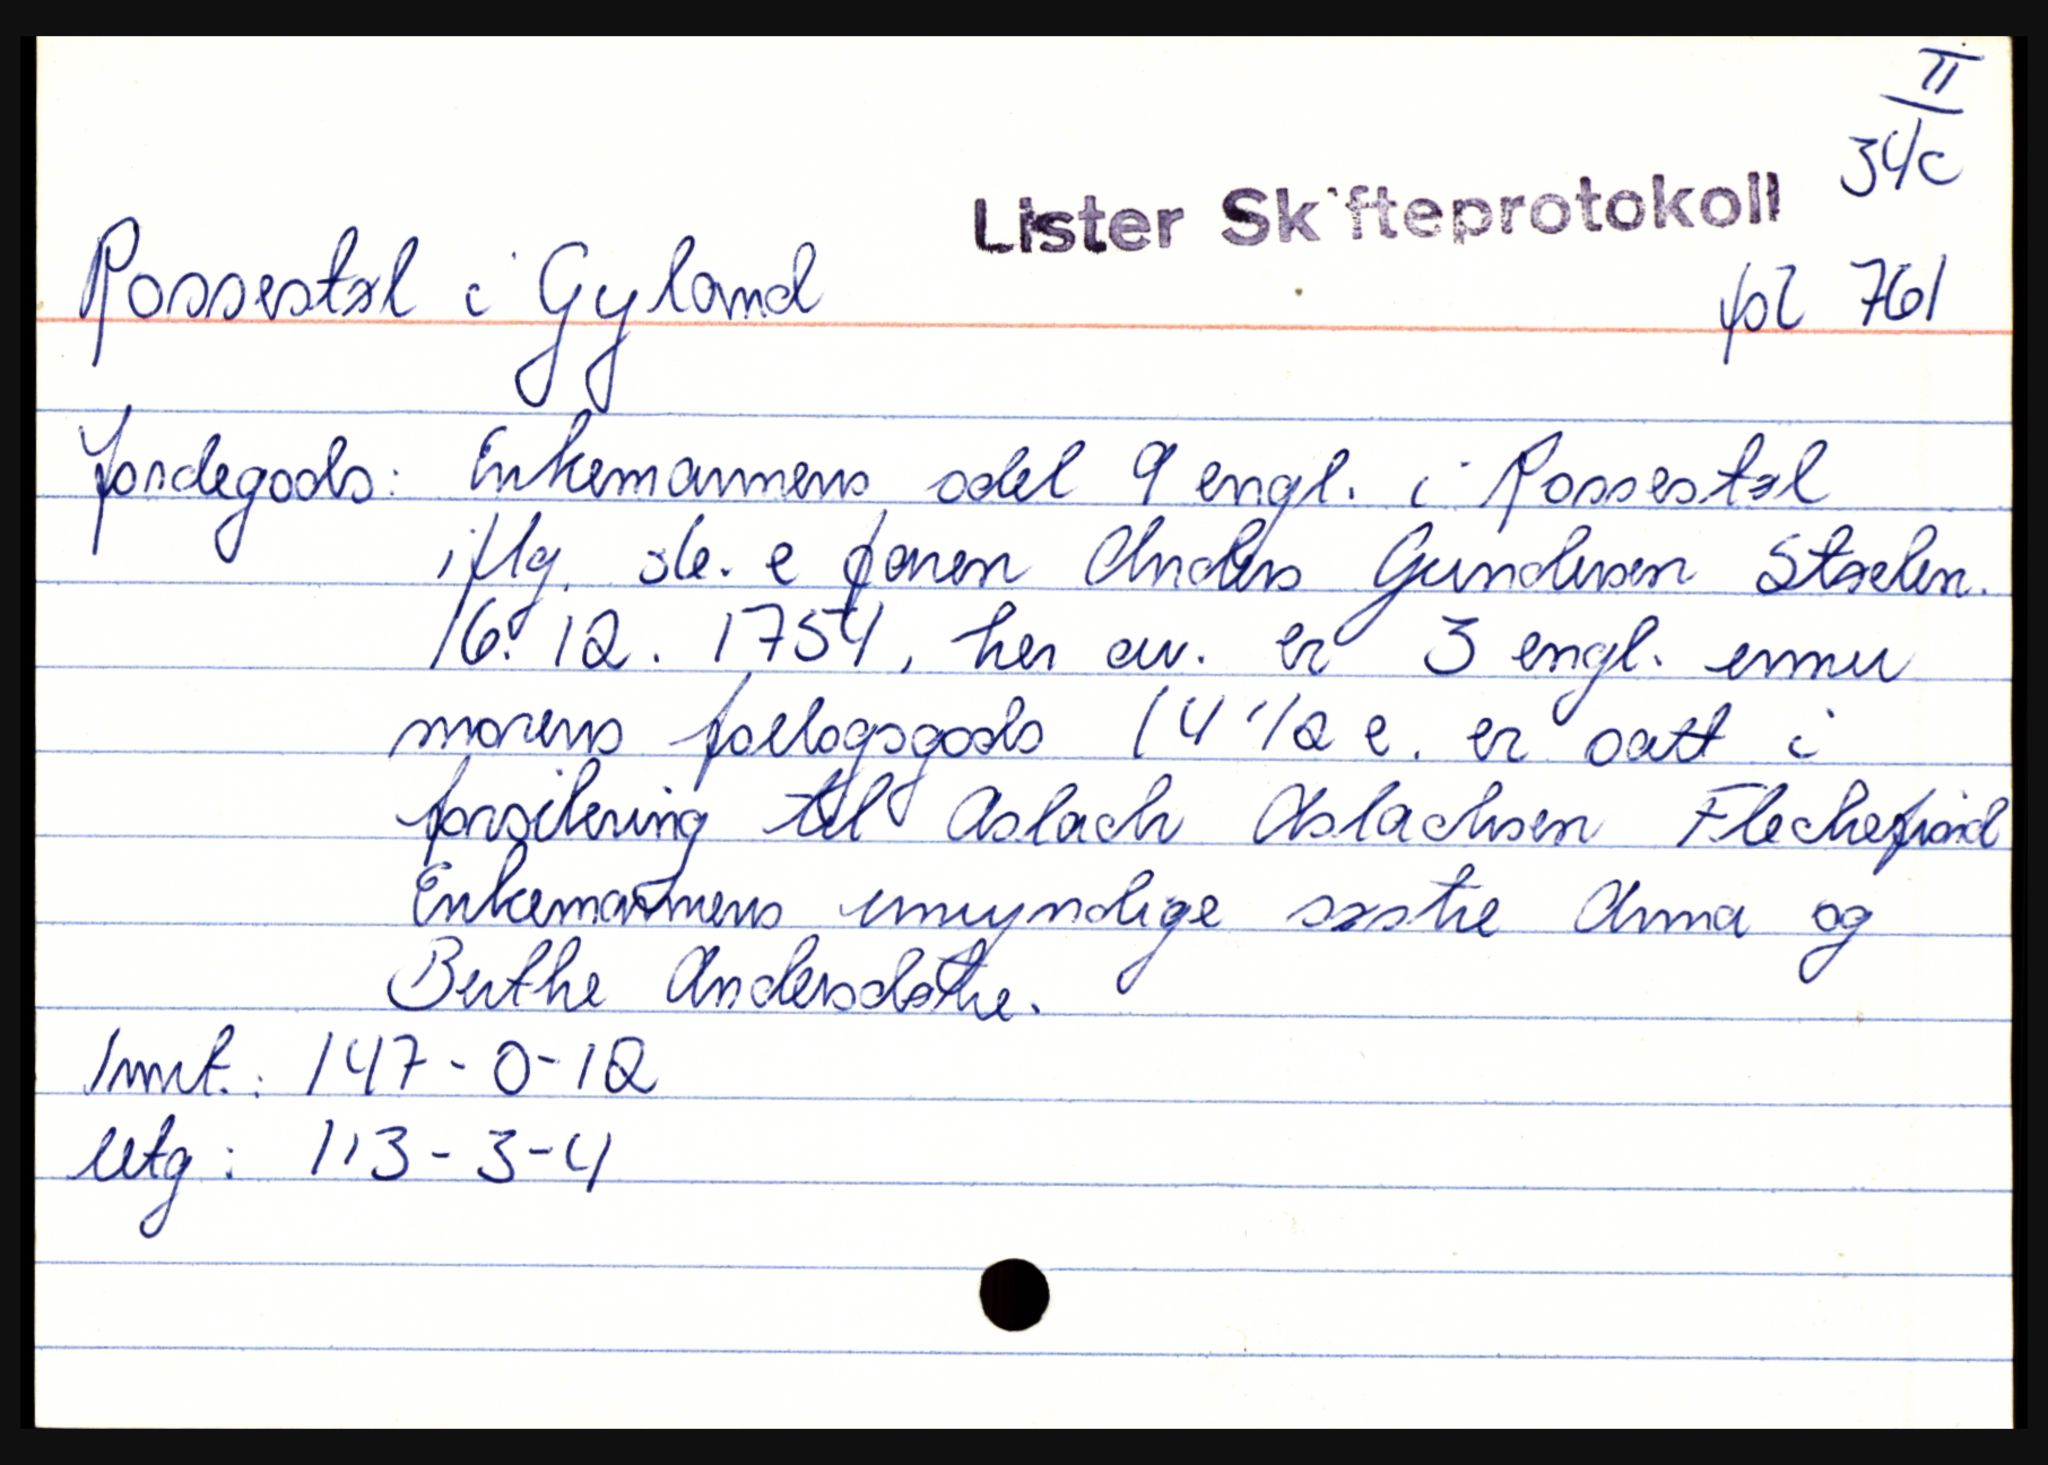 II
34c
Lister Skifteprotokoll
Rossestøl i Gyland
fol 761
Jordegods: Enkemannens odel 9 engl. i Rossestøl
iflg. sk. e faren Anders Gundersen Stølen.
16. 12. 1754, her av. er 3 engl. ennu
morens følogsgods 14 1/2 e. er satt i
forsikering til Aslach Aslachsen Flechefiord
Enkemannens umyndige søstre Anna og
Berthe Andersdøtre.
Innt.: 147-0-12
Utg: 113-3-4